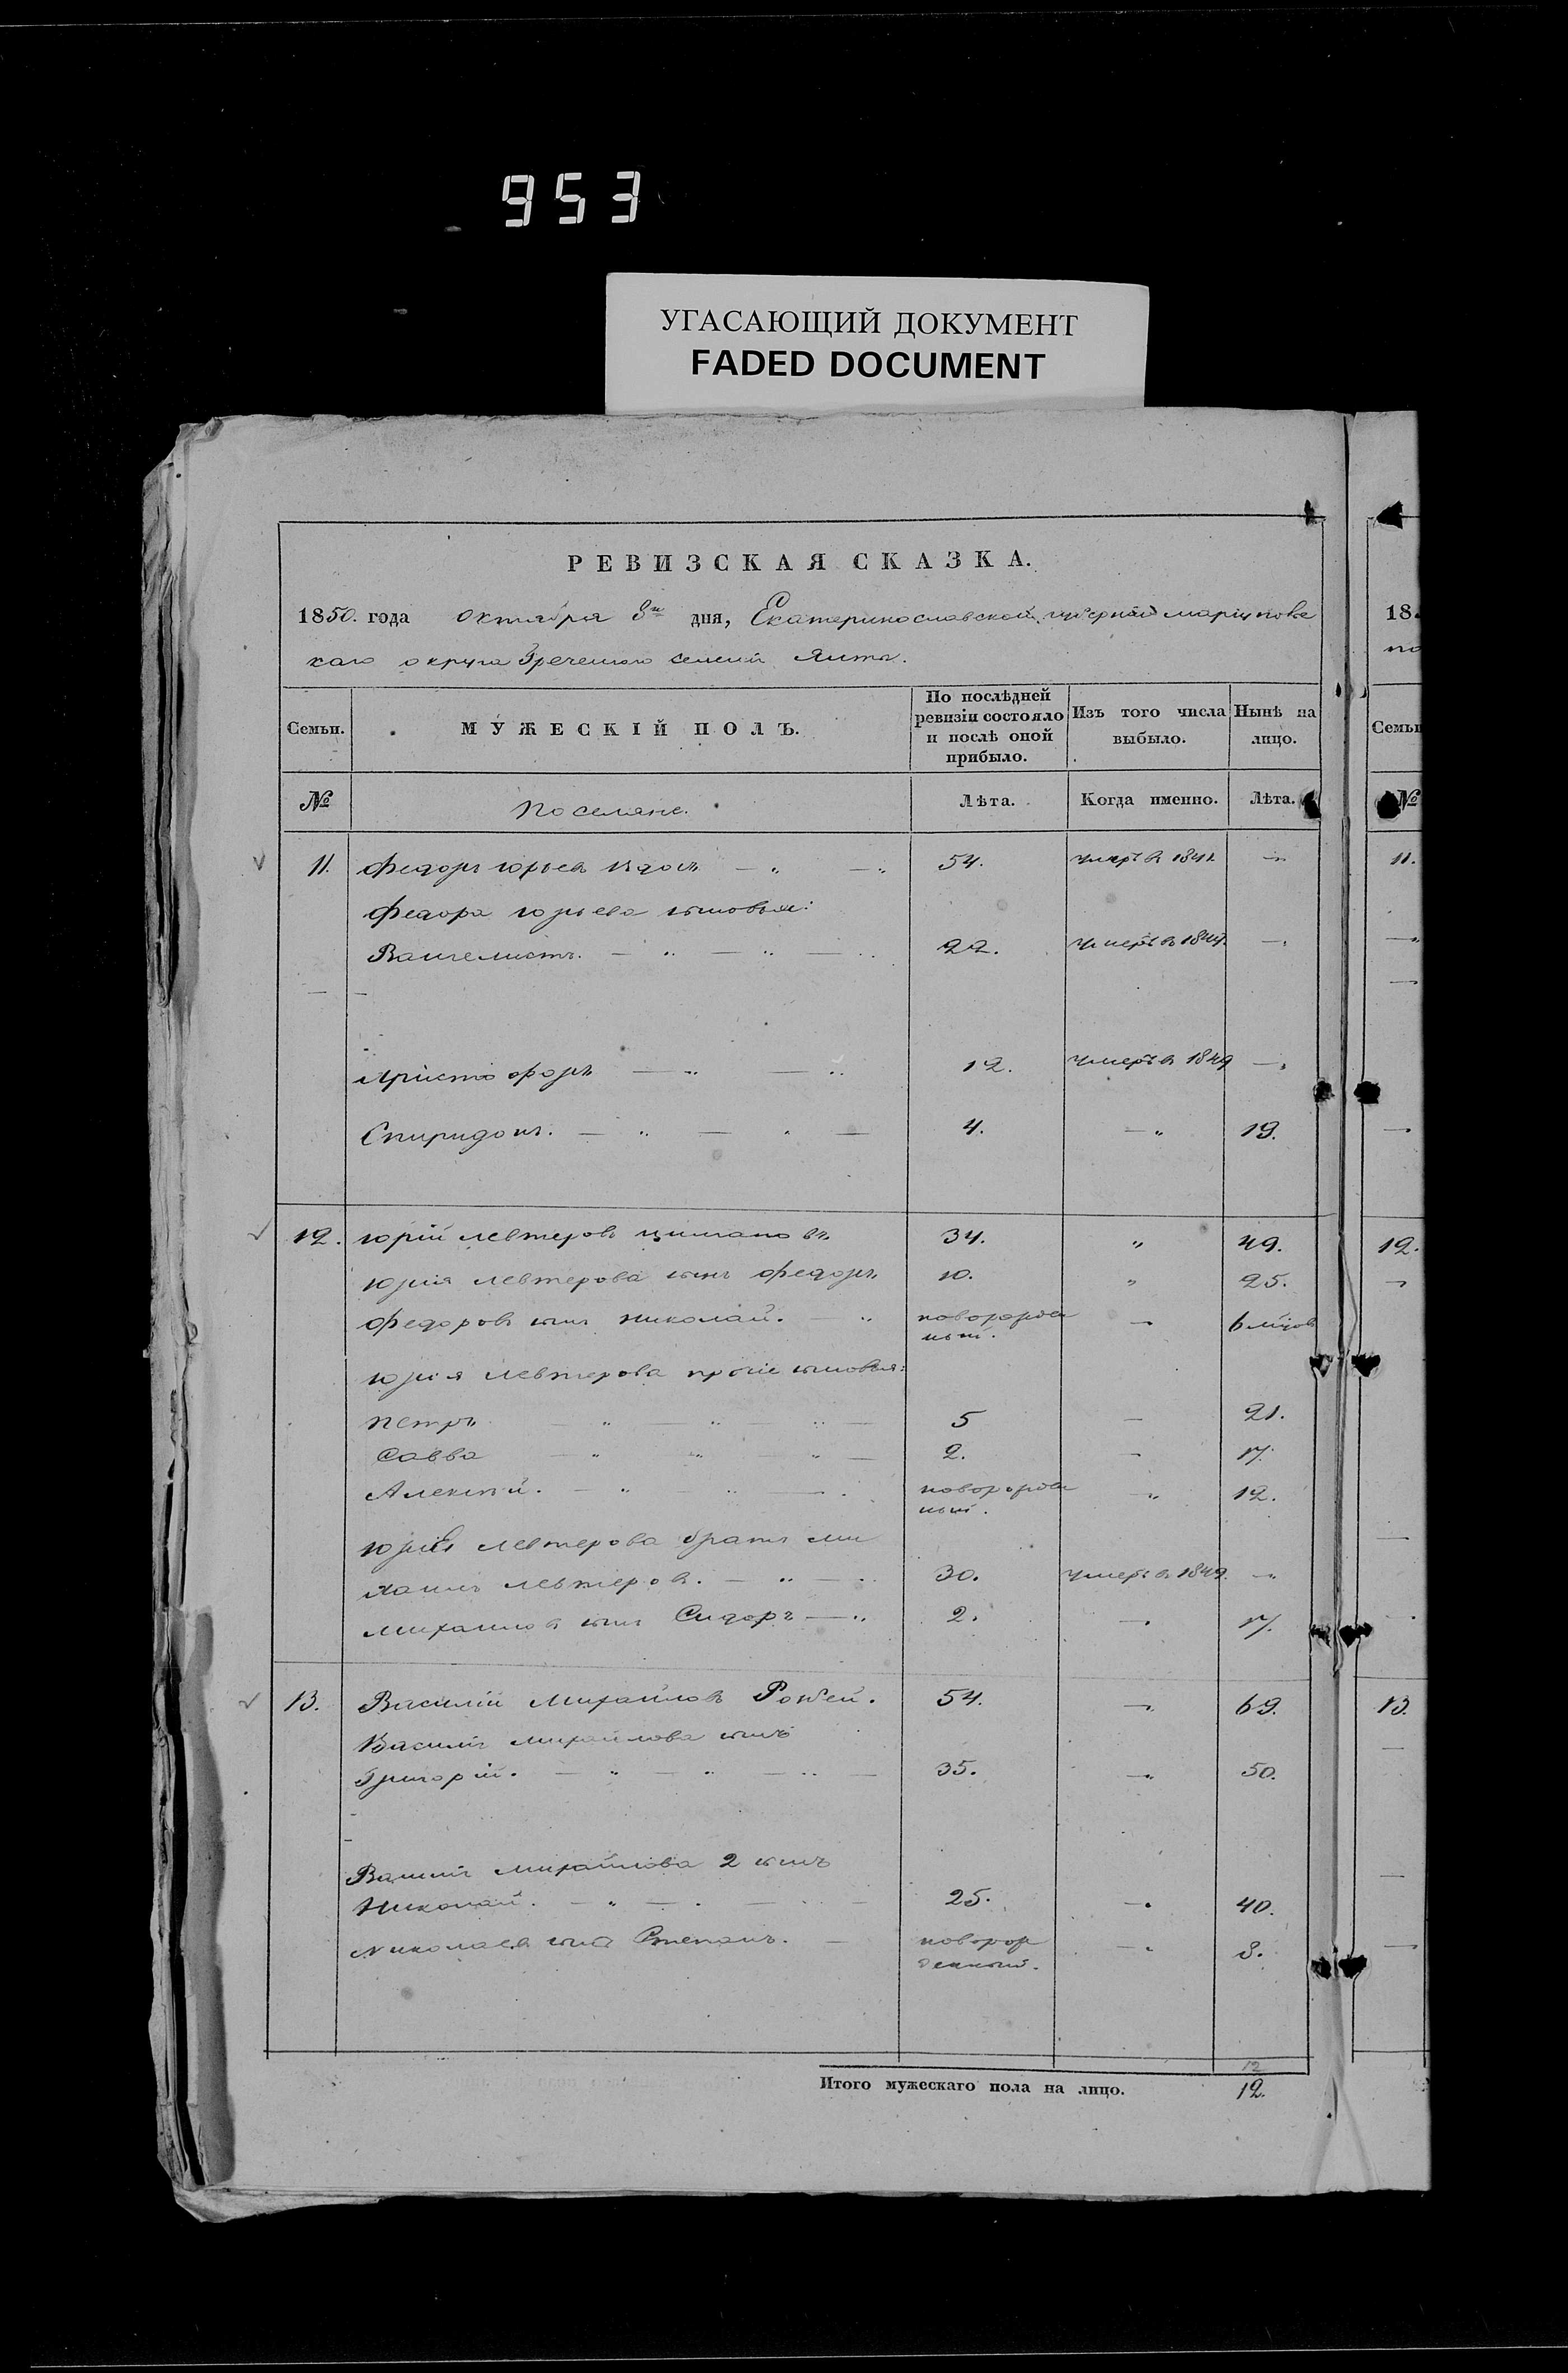 953
УГАСАЮЩИЙ ДОКУМЕНТ
FADED DOCUMENT
РЕВИЗСКАЯ СКАЗКА.
1850. года октября 8го дня, Екатеринославской губерніи маріупольс
каго округа Греческого селенія Ялты.
Семьи. МУЖЕСКІЙ ПОЛЪ. По послѣдней ревизіи состояло и послѣ оной прибыло. Изъ того числа выбыло. Нынѣ на лицо. Семьи
№ Поселяне. Лѣта. Когда именно. Лѣта. №
11. Федоръ юрьевъ 54. умеръ в 1841 11.
Федора юрьева сыновья:
Вангелистъ. 22. умеръ в 1844.
Христофоръ 12. умеръ в 1849
Спиридонъ. 4. 19.
12. юрій левтеровъ 34. 49. 12.
юрія левтерова сынъ федоръ 10. 25.
федоровъ сынъ николай. новорожден ный. 6 мцов
юрія левтерова прочіе сыновья:
петръ 5 21.
савва 2. 17.
Алексѣй. новорожден ный. 12.
юрія левтерова братъ ми
хаилъ левтеровъ. 30. умеръ в 1849.
михаиловъ сынъ Сидоръ 2. 17.
13. Василій михайловъ 54. 69. 13.
Василія михайлова сынъ
Григорій. 35. 50.
Василія михайлова 2 сынъ
николай. 25. 40.
николаевъ сынъ Степанъ. новорож денный. 8.
12
Итого мужескаго пола на лицо. 12.